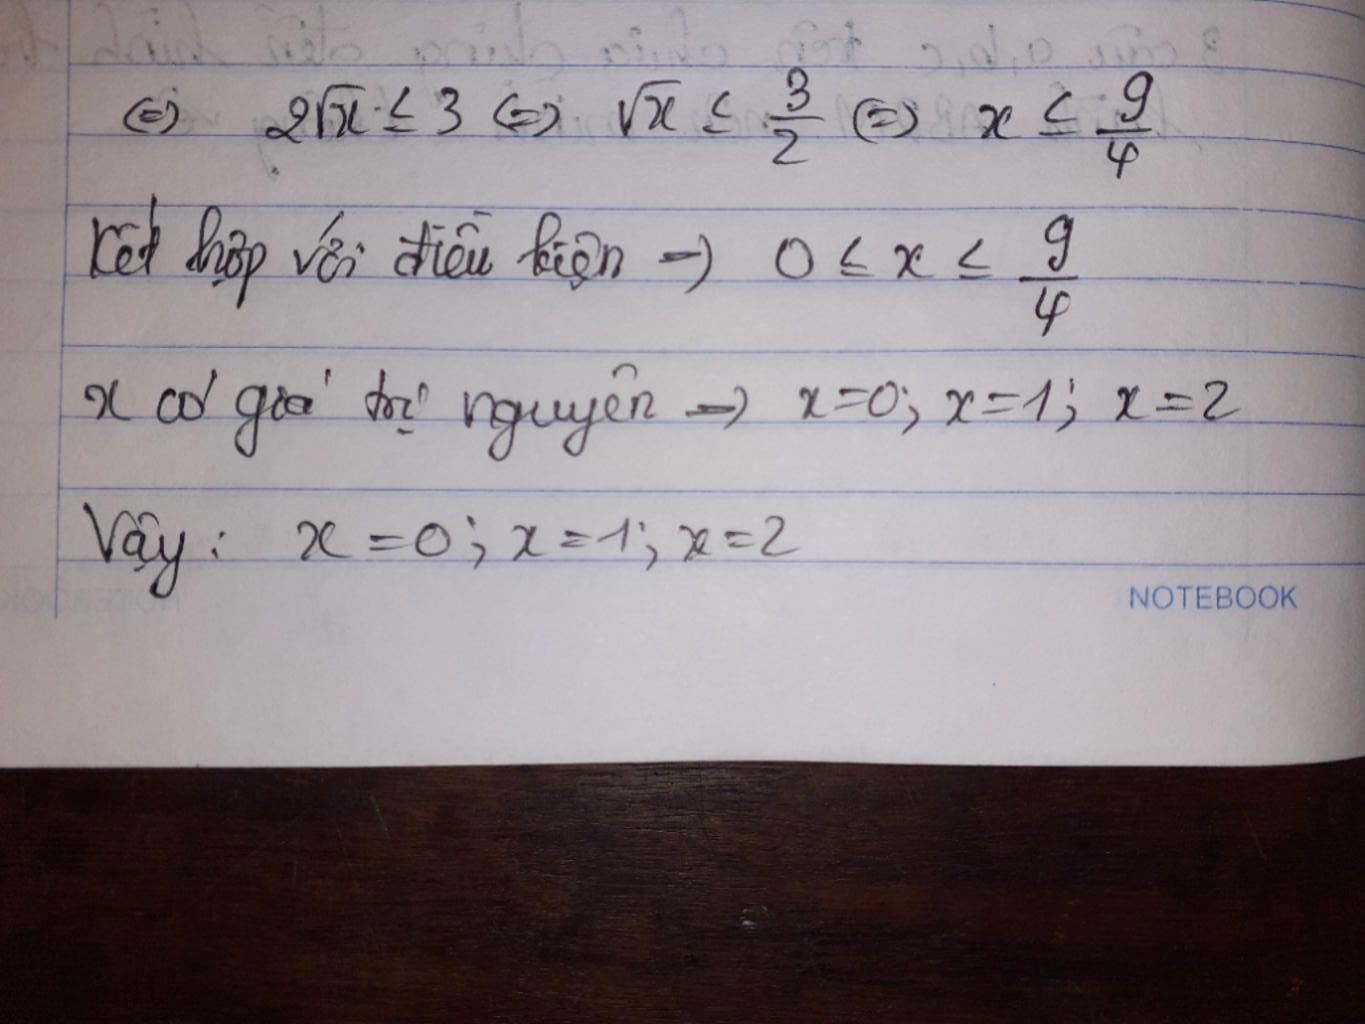 ⇔ 2√x ≤ 3 ⇔ √x ≤ 3/2 ⇔ x ≤ 9/4
Kết hợp với điều kiện → 0 ≤ x ≤ 9/4
x có giá trị nguyên → x=0; x=1; x=2
Vậy: x=0; x=1; x=2
NOTEBOOK